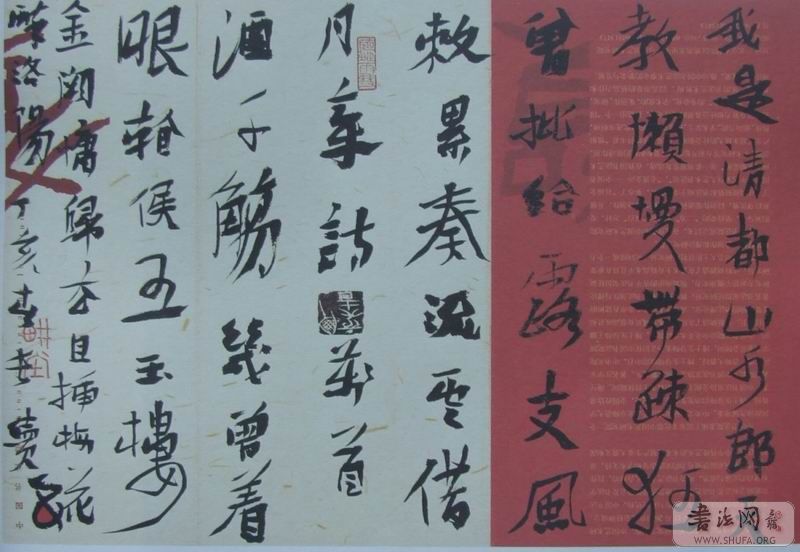 我是清都山水郎天
教懶慢帶疎狂
曾批給露支風
敕累奏流雲借
月章詩萬首
酒千觴幾曾着
眼看侯王玉樓
金闕慵歸去且插梅花
醉洛陽丁亥
书法网
WWW.SHUFA.ORG